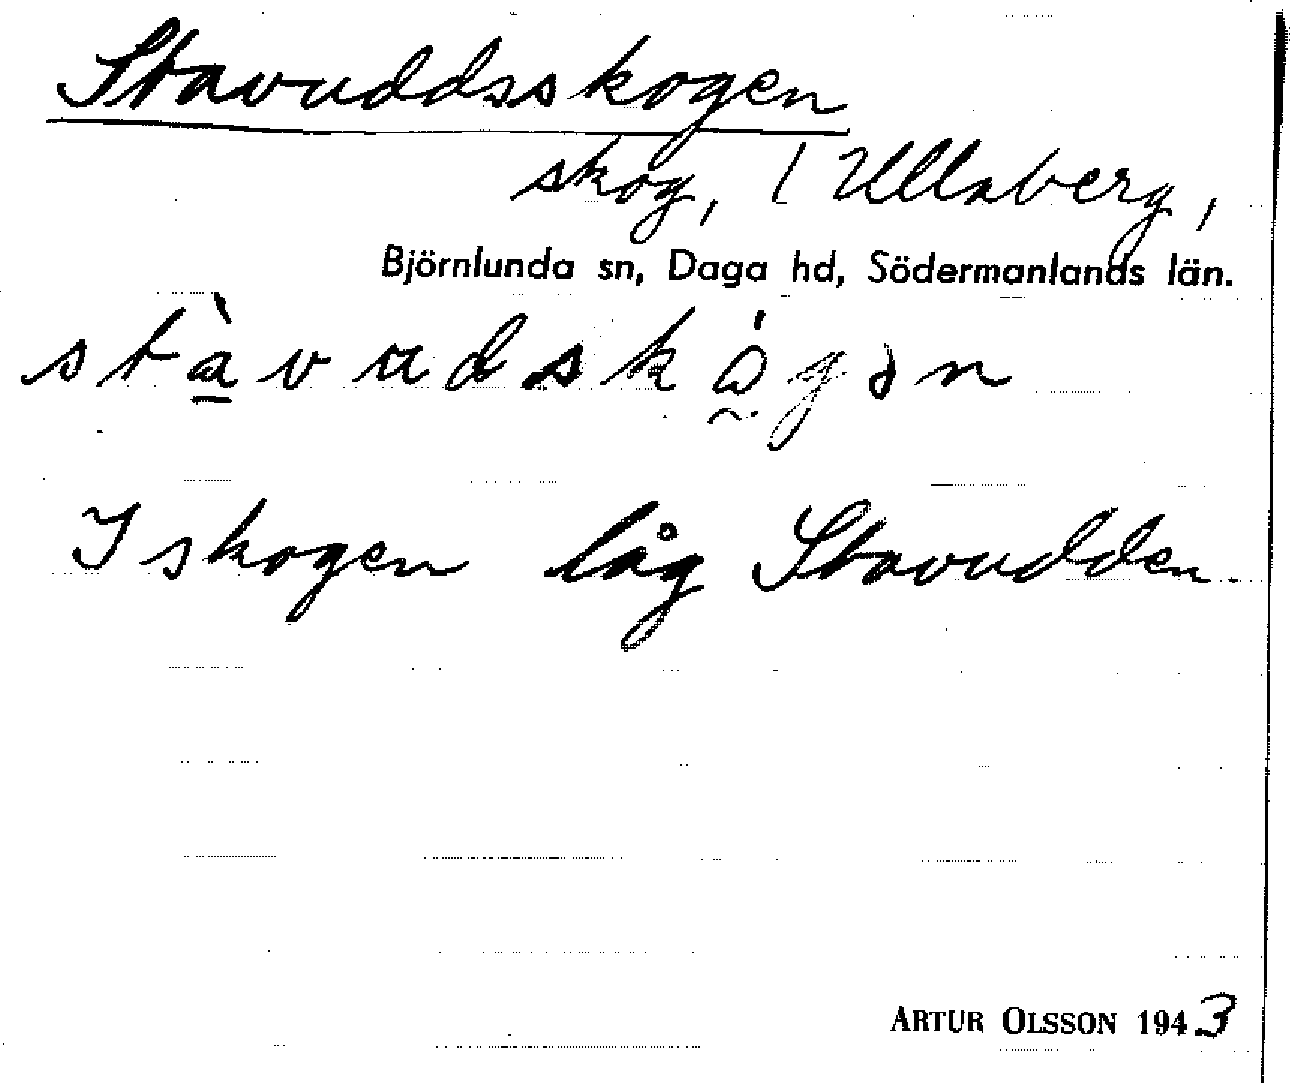 Stavuddsskogen
skog, / Ullaberg,
Björnlunda sn, Daga hd, Södermanlands län.
I skogen låg Stavudden.
ARTUR OLSSON 1943